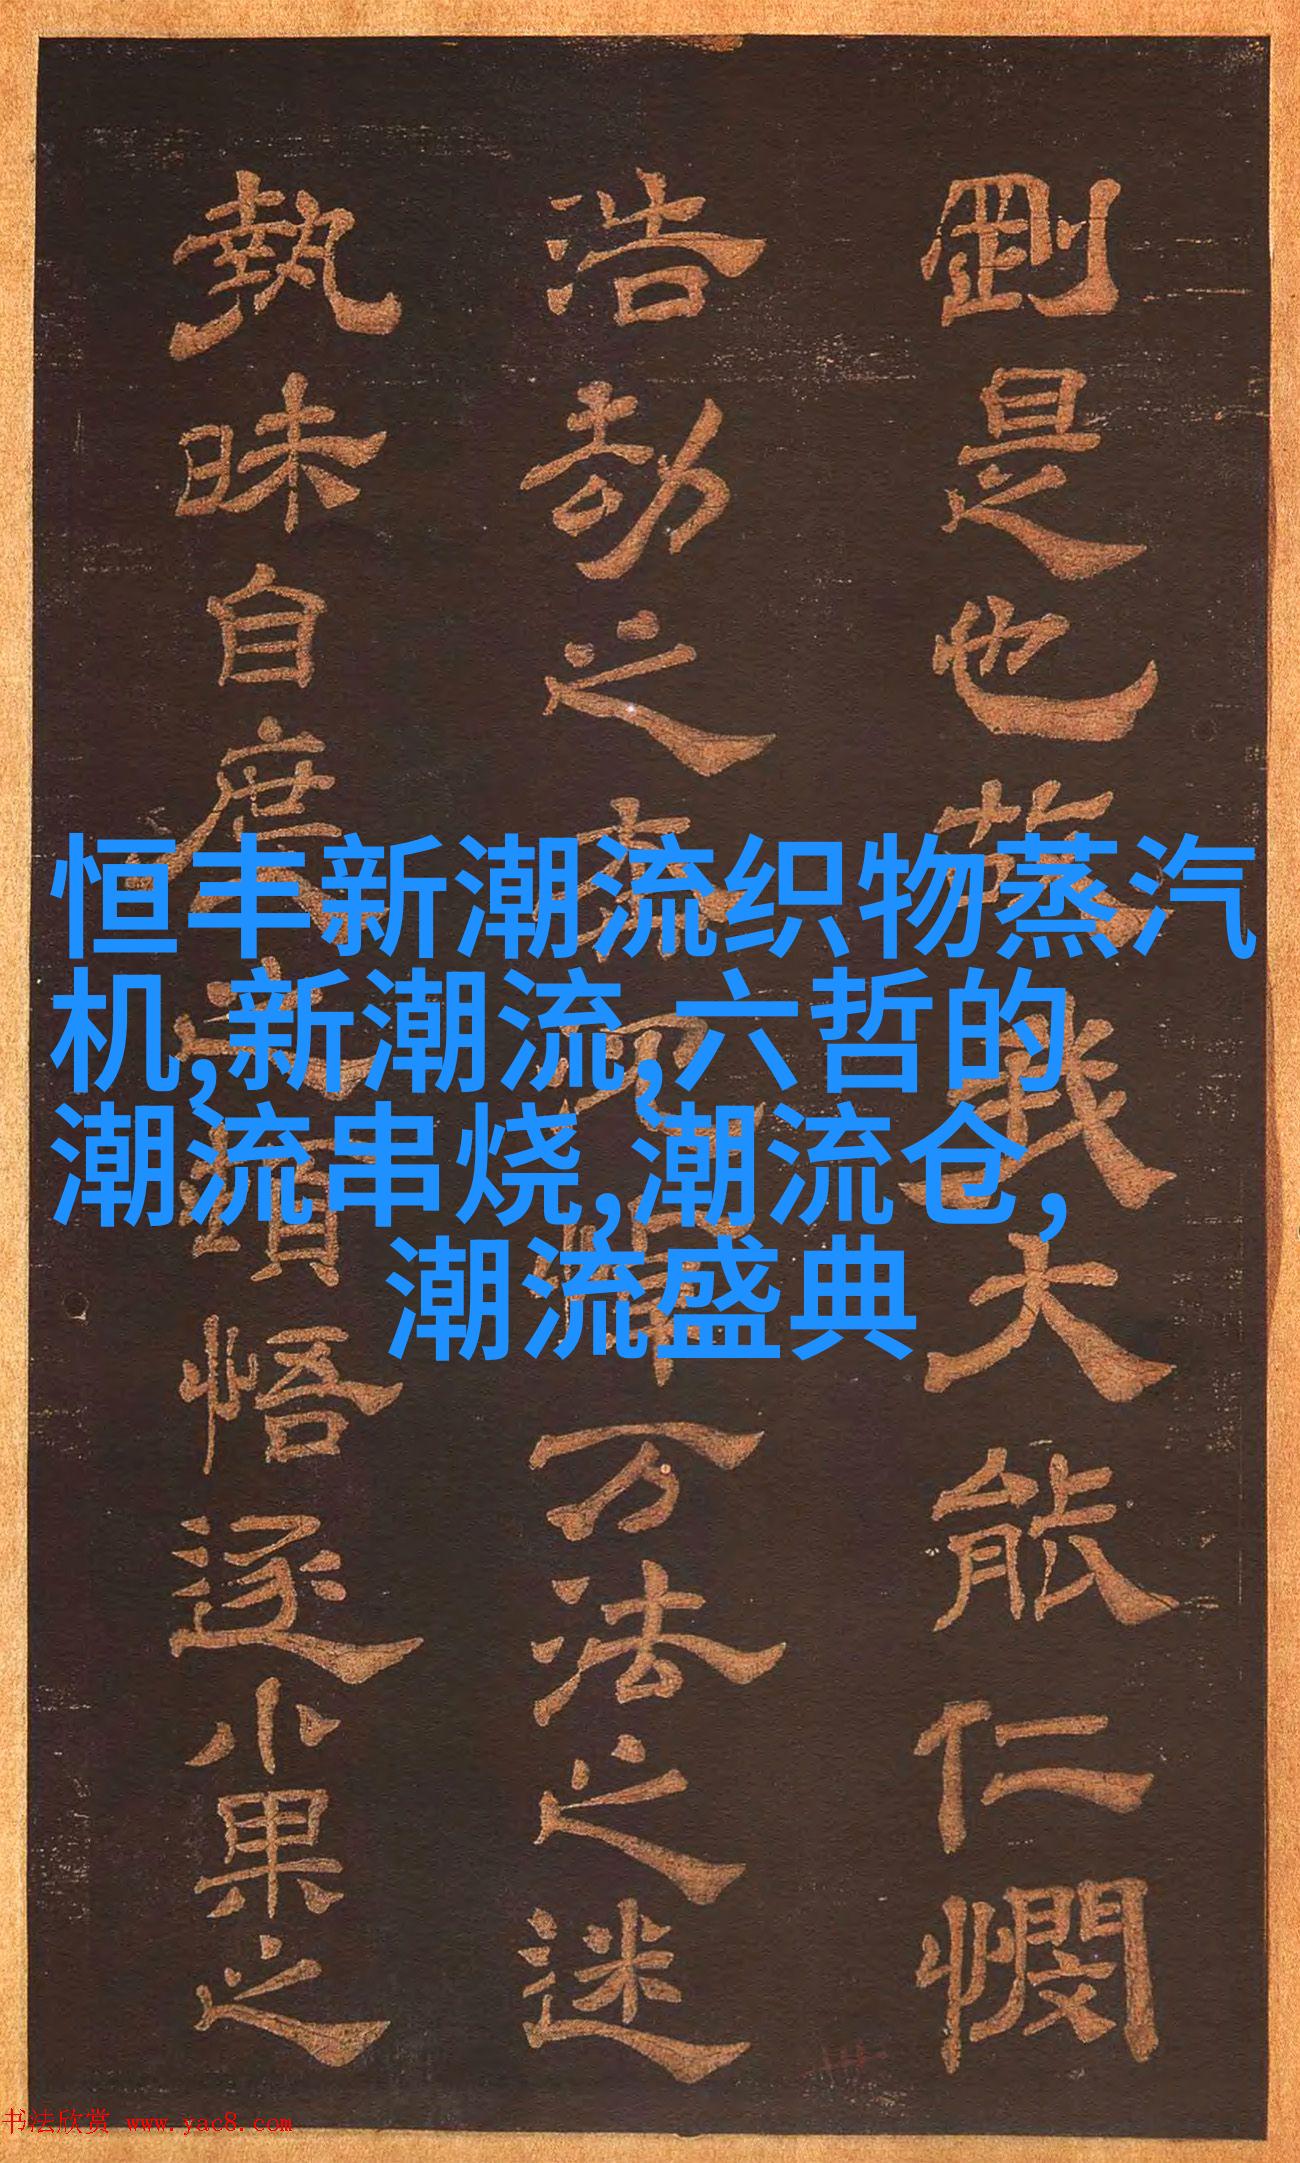 剛是也大能仁憫
浩劫之万法之迷
執昧自度悟逐小果之
恒丰新潮流织物蒸汽
机,新潮流,六哲的
潮流串烧,潮流仓,
潮流盛典
书法欣赏 www.yac8.com